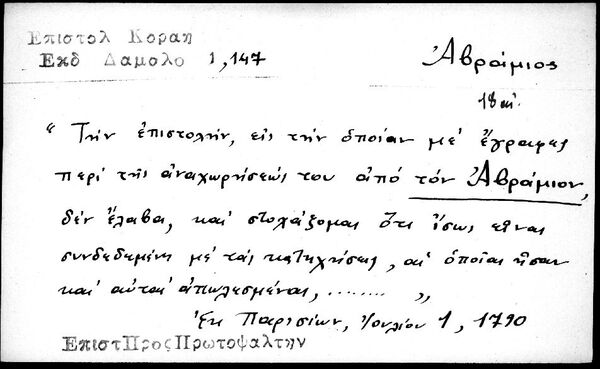 Επιστολ Κοραη
Εκδ Δαμαλα 1,147
Ἀβράμιος
18 αἰ.
“Τὴν ἐπιστολὴν, εἰς τὴν ὁποίαν μὲ ἔγραφες
περὶ τῆς ἀναχωρήσεώς του ἀπὸ τὸν Ἀβράμιον,
δὲν ἔλαβα, καὶ στοχάζομαι ὅτι ἴσως εἶναι
συνδεδεμένη μὲ τὰς κατηχήσεις, αἱ ὁποῖαι ἦσαν
καὶ αὐταὶ ἀπωλεσμέναι, ........ „
Ἐκ Παρισίων, Ἰουλίου 1, 1790
ΕπιστΠροςΠρωτοψαλτην